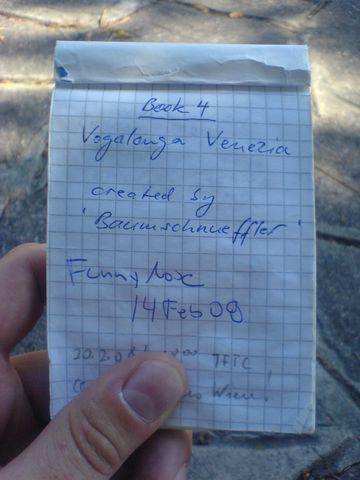 Book 4
Vogalonga Venezia
created by
'Baumschnueffler'
Funnynoxe
14 Feb 09
TFTC
Wien!